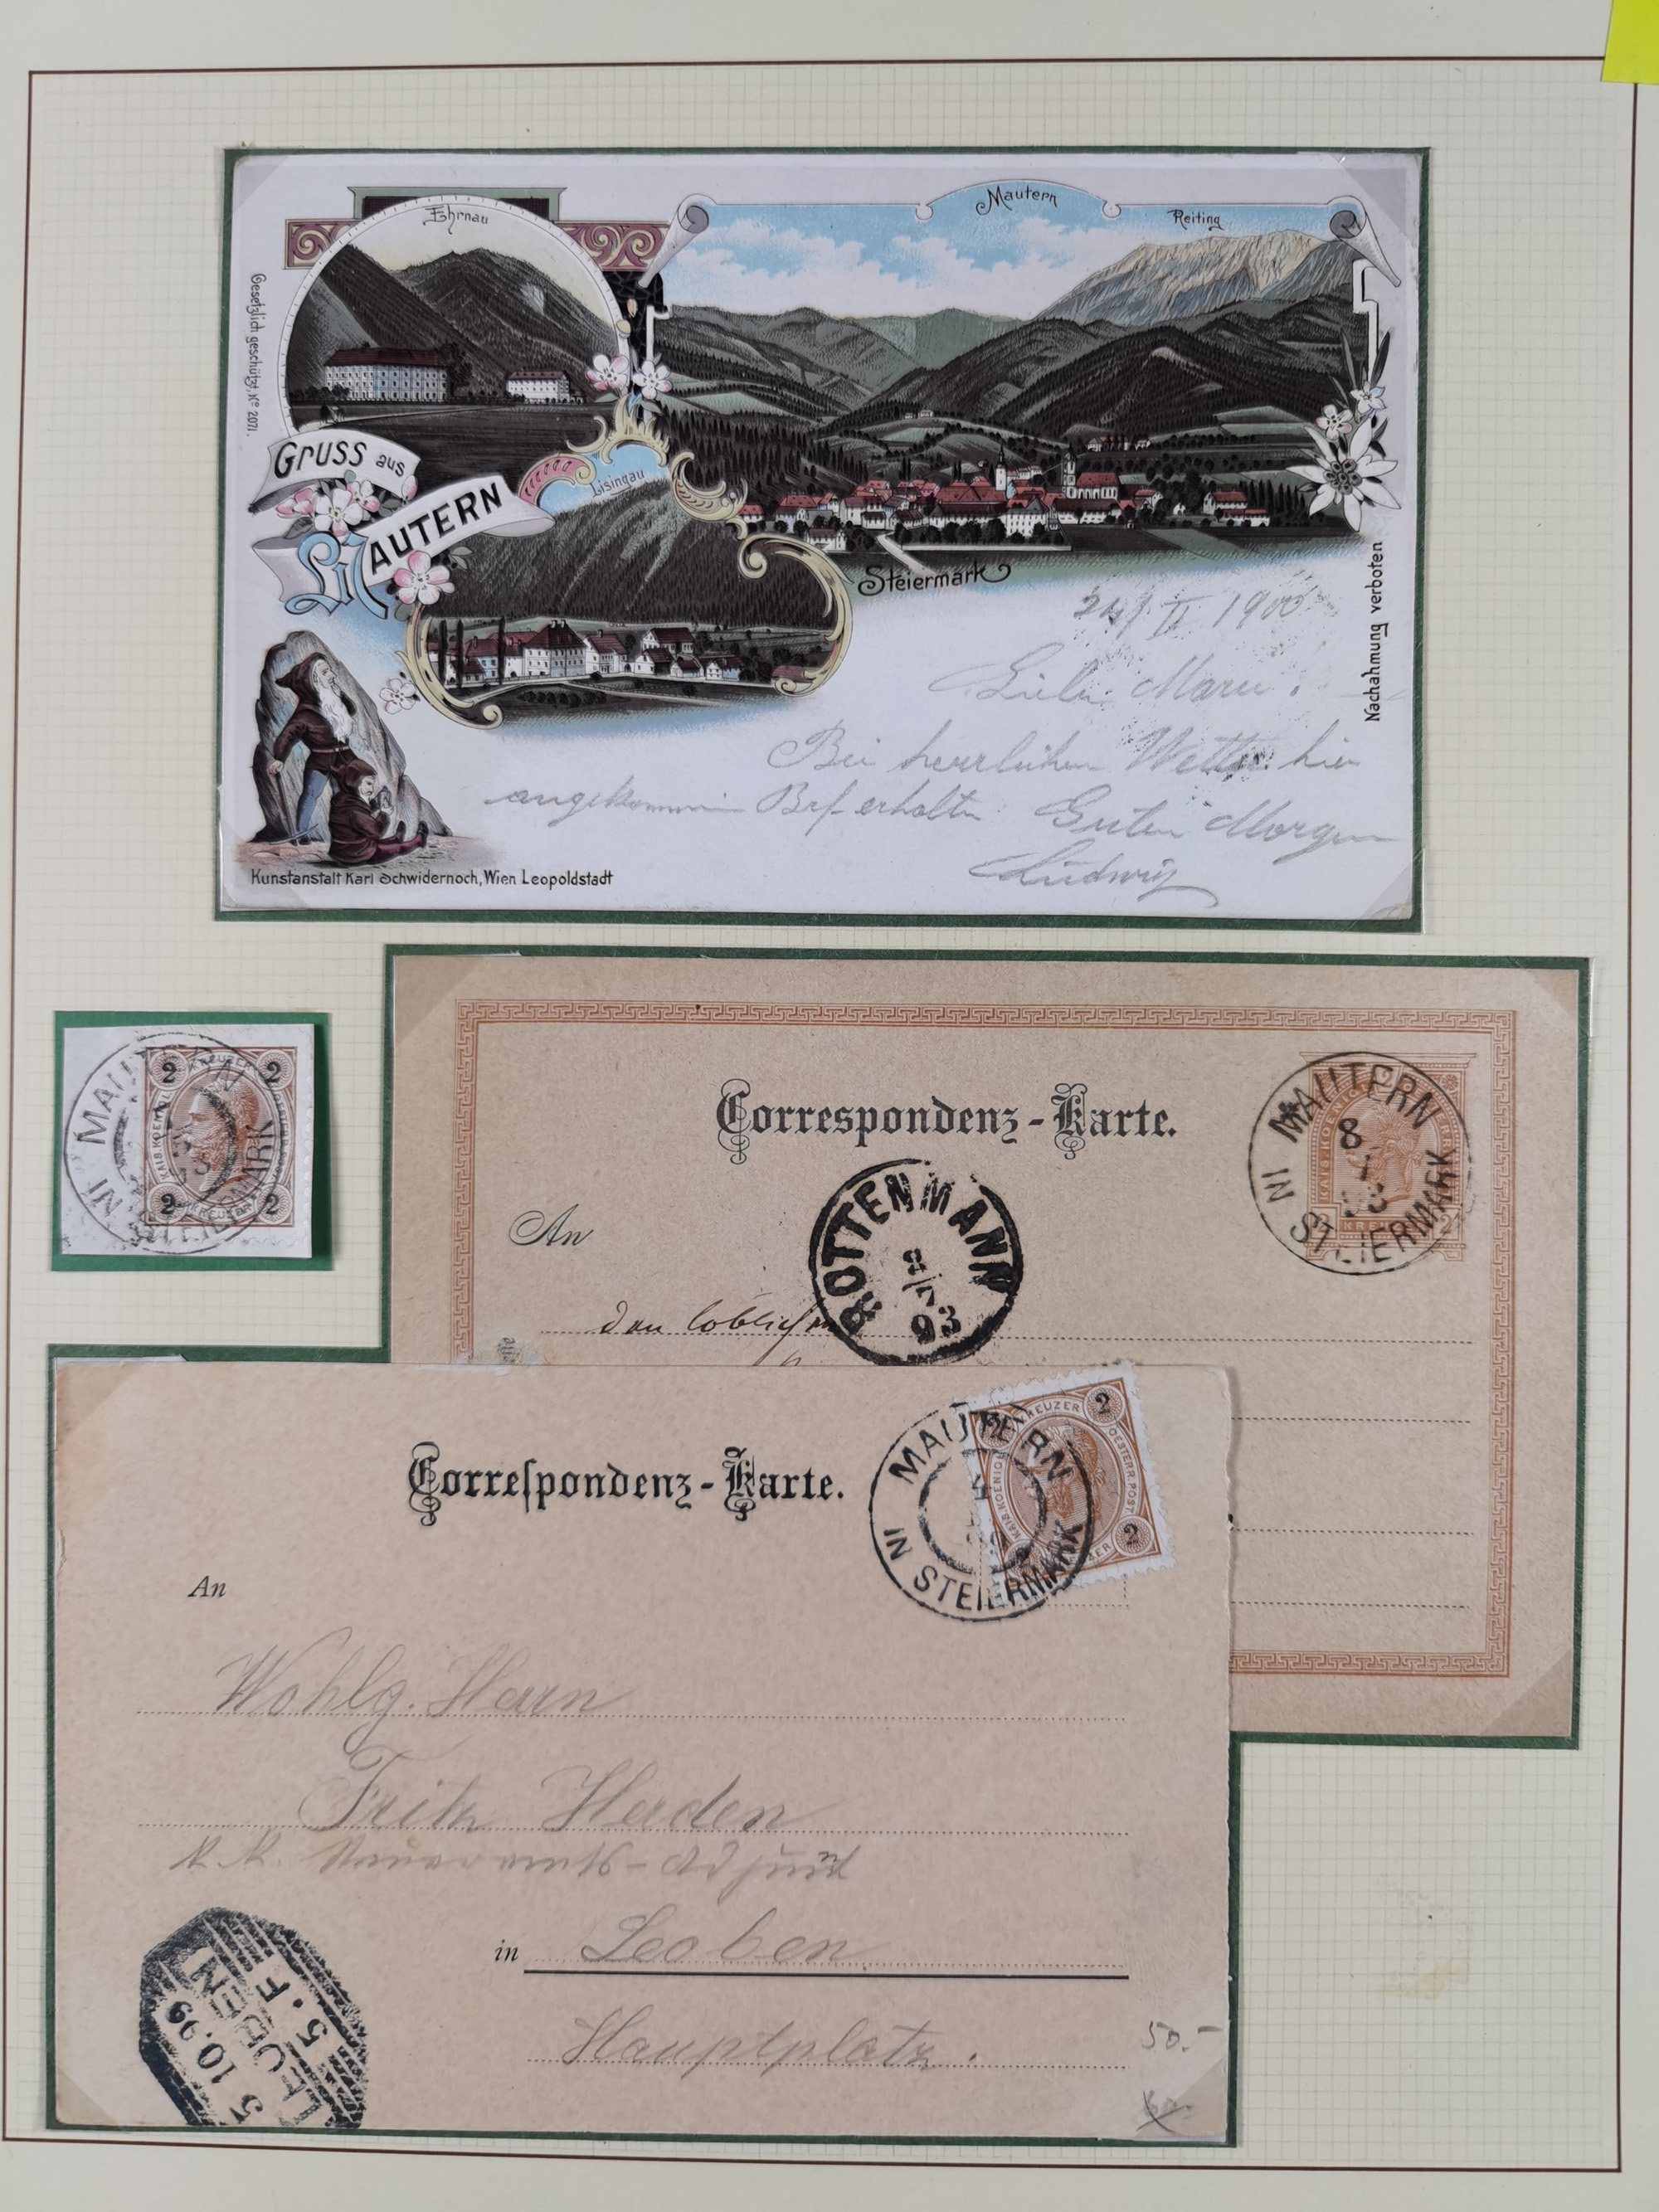 Ehrnau
Mautern
Reiting
Gesetzlich geschützt, No 2071.
Gruss aus
MAUTERN
Lisingau
Steiermark
24/ II 1900
Liebe Marie!
Bei herrlichem Wetter hier
angekommen Brf erhalten Guten Morgen
Ludwig
Nachahmung verboten
Kunstanstalt Karl Schwidernoch, Wien Leopoldstadt
MAUTERN
IN STEIERMARK
2 KREUZER 2
KAIS. KOENIGL. OESTERR. POST
2 KREUZER 2
Correspondenz-Karte.
MAUTERN
8
IN STEIERMARK
KAIS. KOENIGL.
2 KREUZER 2
An
ROTTENMANN
8/7
93
Correspondenz-Karte.
MAUTERN
IN STEIERMARK
KREUZER 2
KAIS. KOENIGL. OESTERR. POST
2
An
Wohlg. Herrn
Fritz Haden
K. K.
in Leoben
Hauptplatz.
LEOBEN
5 10.99
5. F
50.-